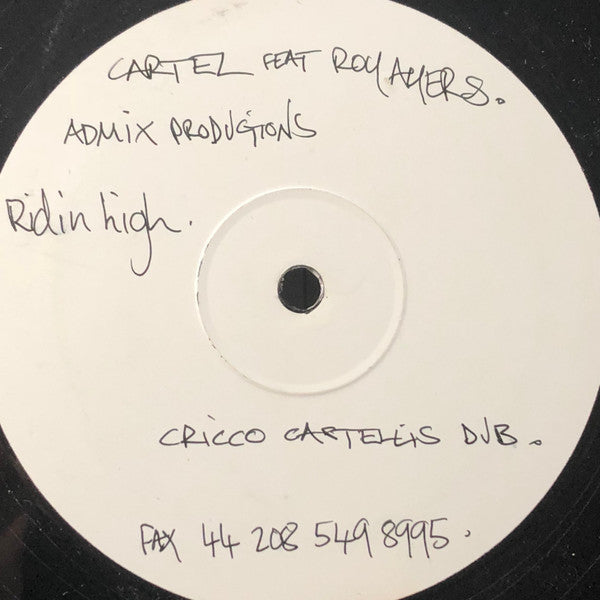 CARTEL FEAT ROY AYERS.
ADMIX PRODUCTIONS
Ridin high.
CRICCO CARTELLIS DUB.
FAX 44 208 549 8995.